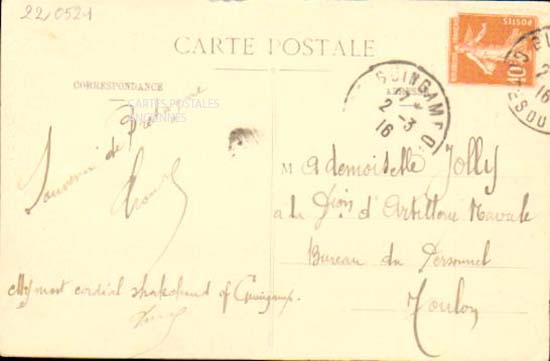 22/0521
CARTE POSTALE
CORRESPONDANCE
CARTES POSTALES
ANCIENNES
ADRESSE
GUINGAMP
2-3
16
POSTES
10c
2
16
Souvenir de Bretagne
Mademoiselle Jolly
à la Dion d'Artillerie Navale
Bureau du Personnel
Toulon
My most cordial shakehand of Guingamp.